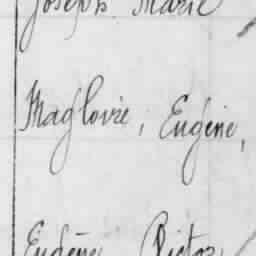 Joseph Marie
Magloire, Eugène,
Eugène Victor